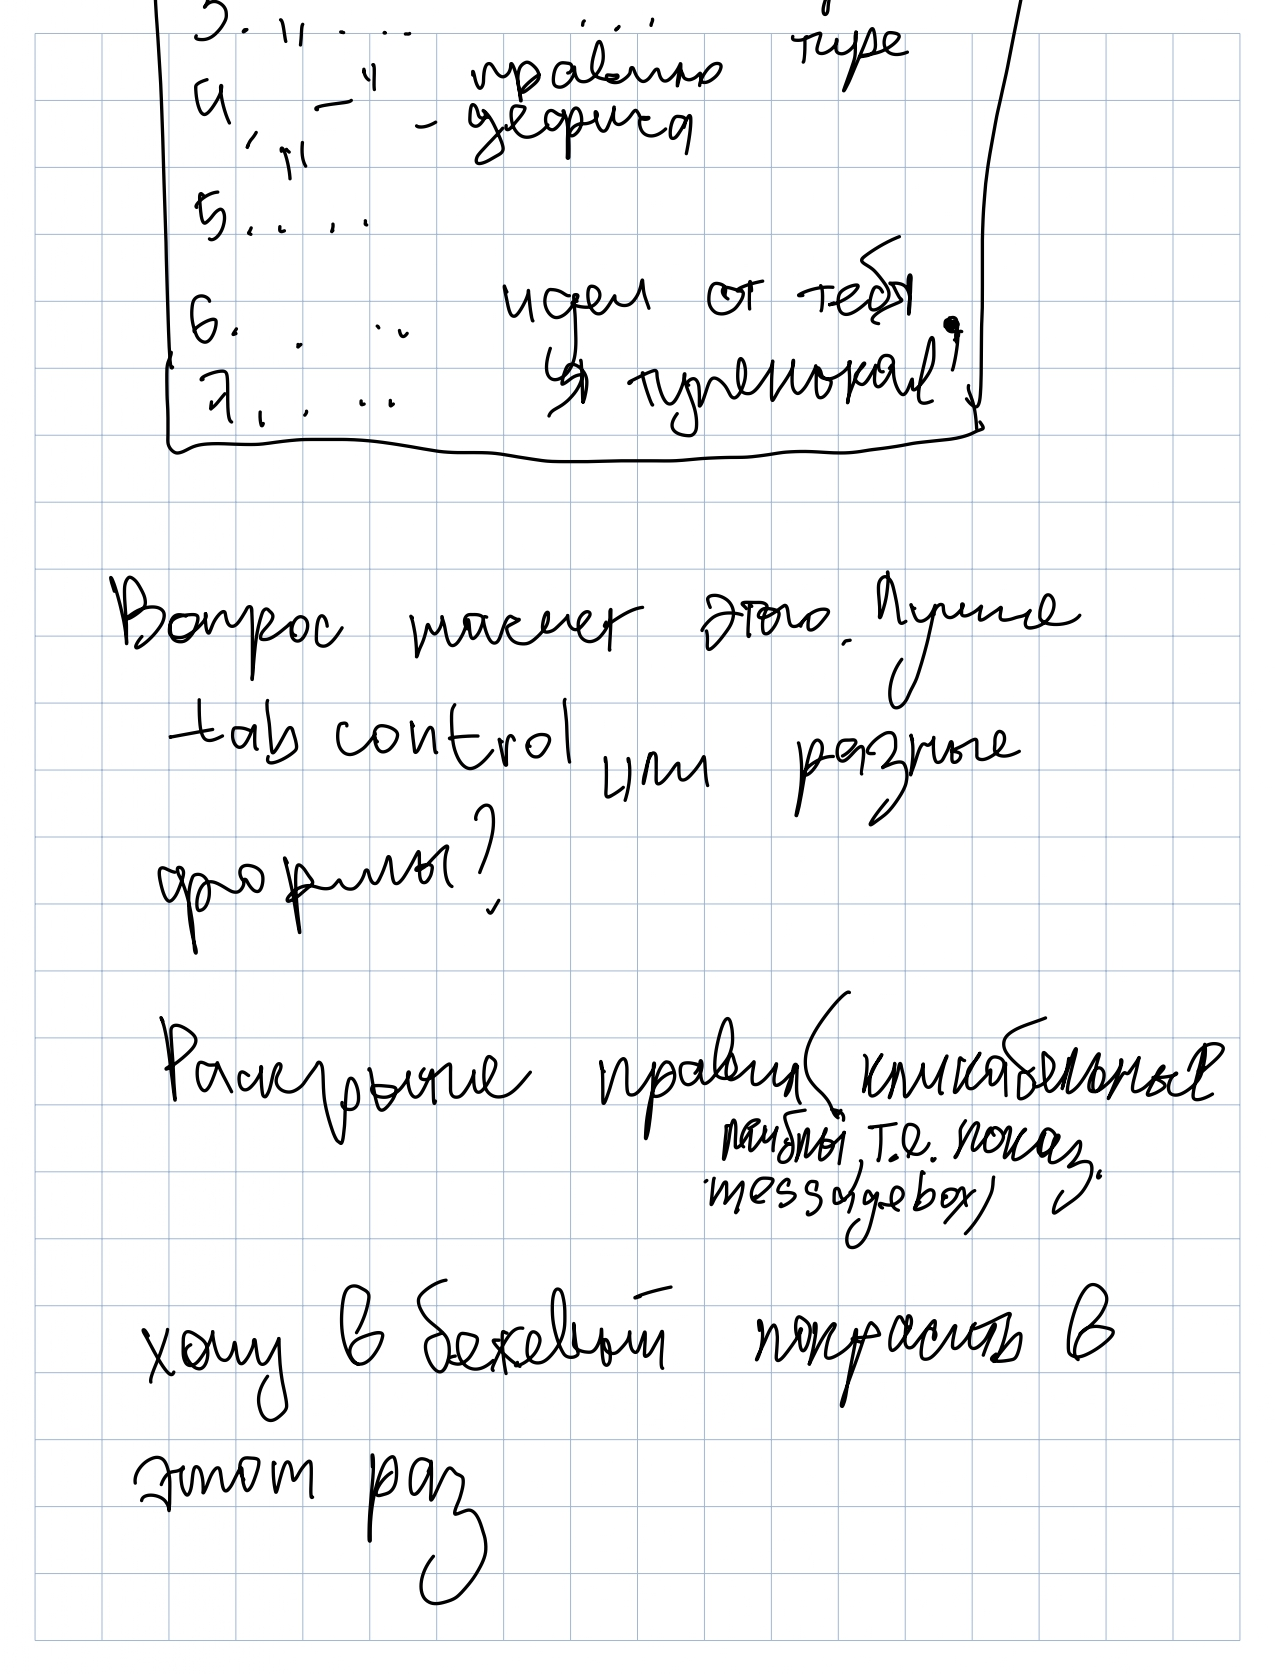 3. " . ...
type
4. — " правило
- дефиса
5. . . .
6. . . .. идеи от тебя
7. . . .. я группировал!
Вопрос насчет этого. Лучше
tab control или разные
формы?
Раскрытие правил (кликабельные
лейблы, т.е. показ.
messagebox)
хочу в бежевый покрасить в
этот раз